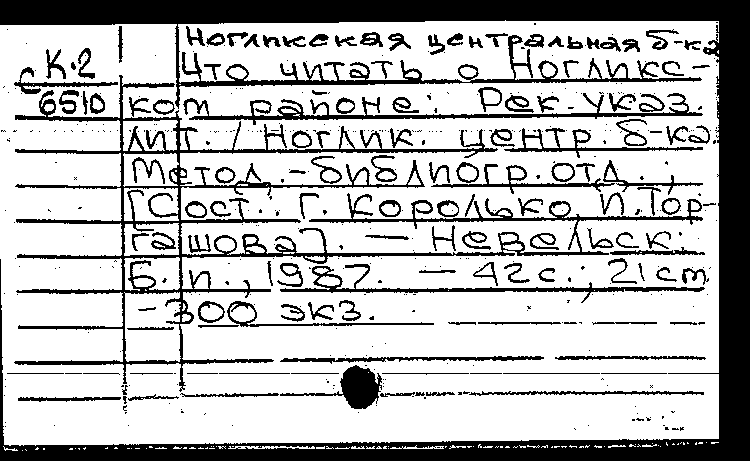 Ногликская центральная б-ка
К.2 Что читать о Ногликс-
с 6510 ком районе: Рек. указ.
лит. / Ноглик. центр. б-ка.
Метод.-библиогр. отд. ;
[Сост.: Г. Королько, И. Тор-
гашова]. — Невельск:
Б. и., 1987. — 42 с.; 21 cm
-300 экз.